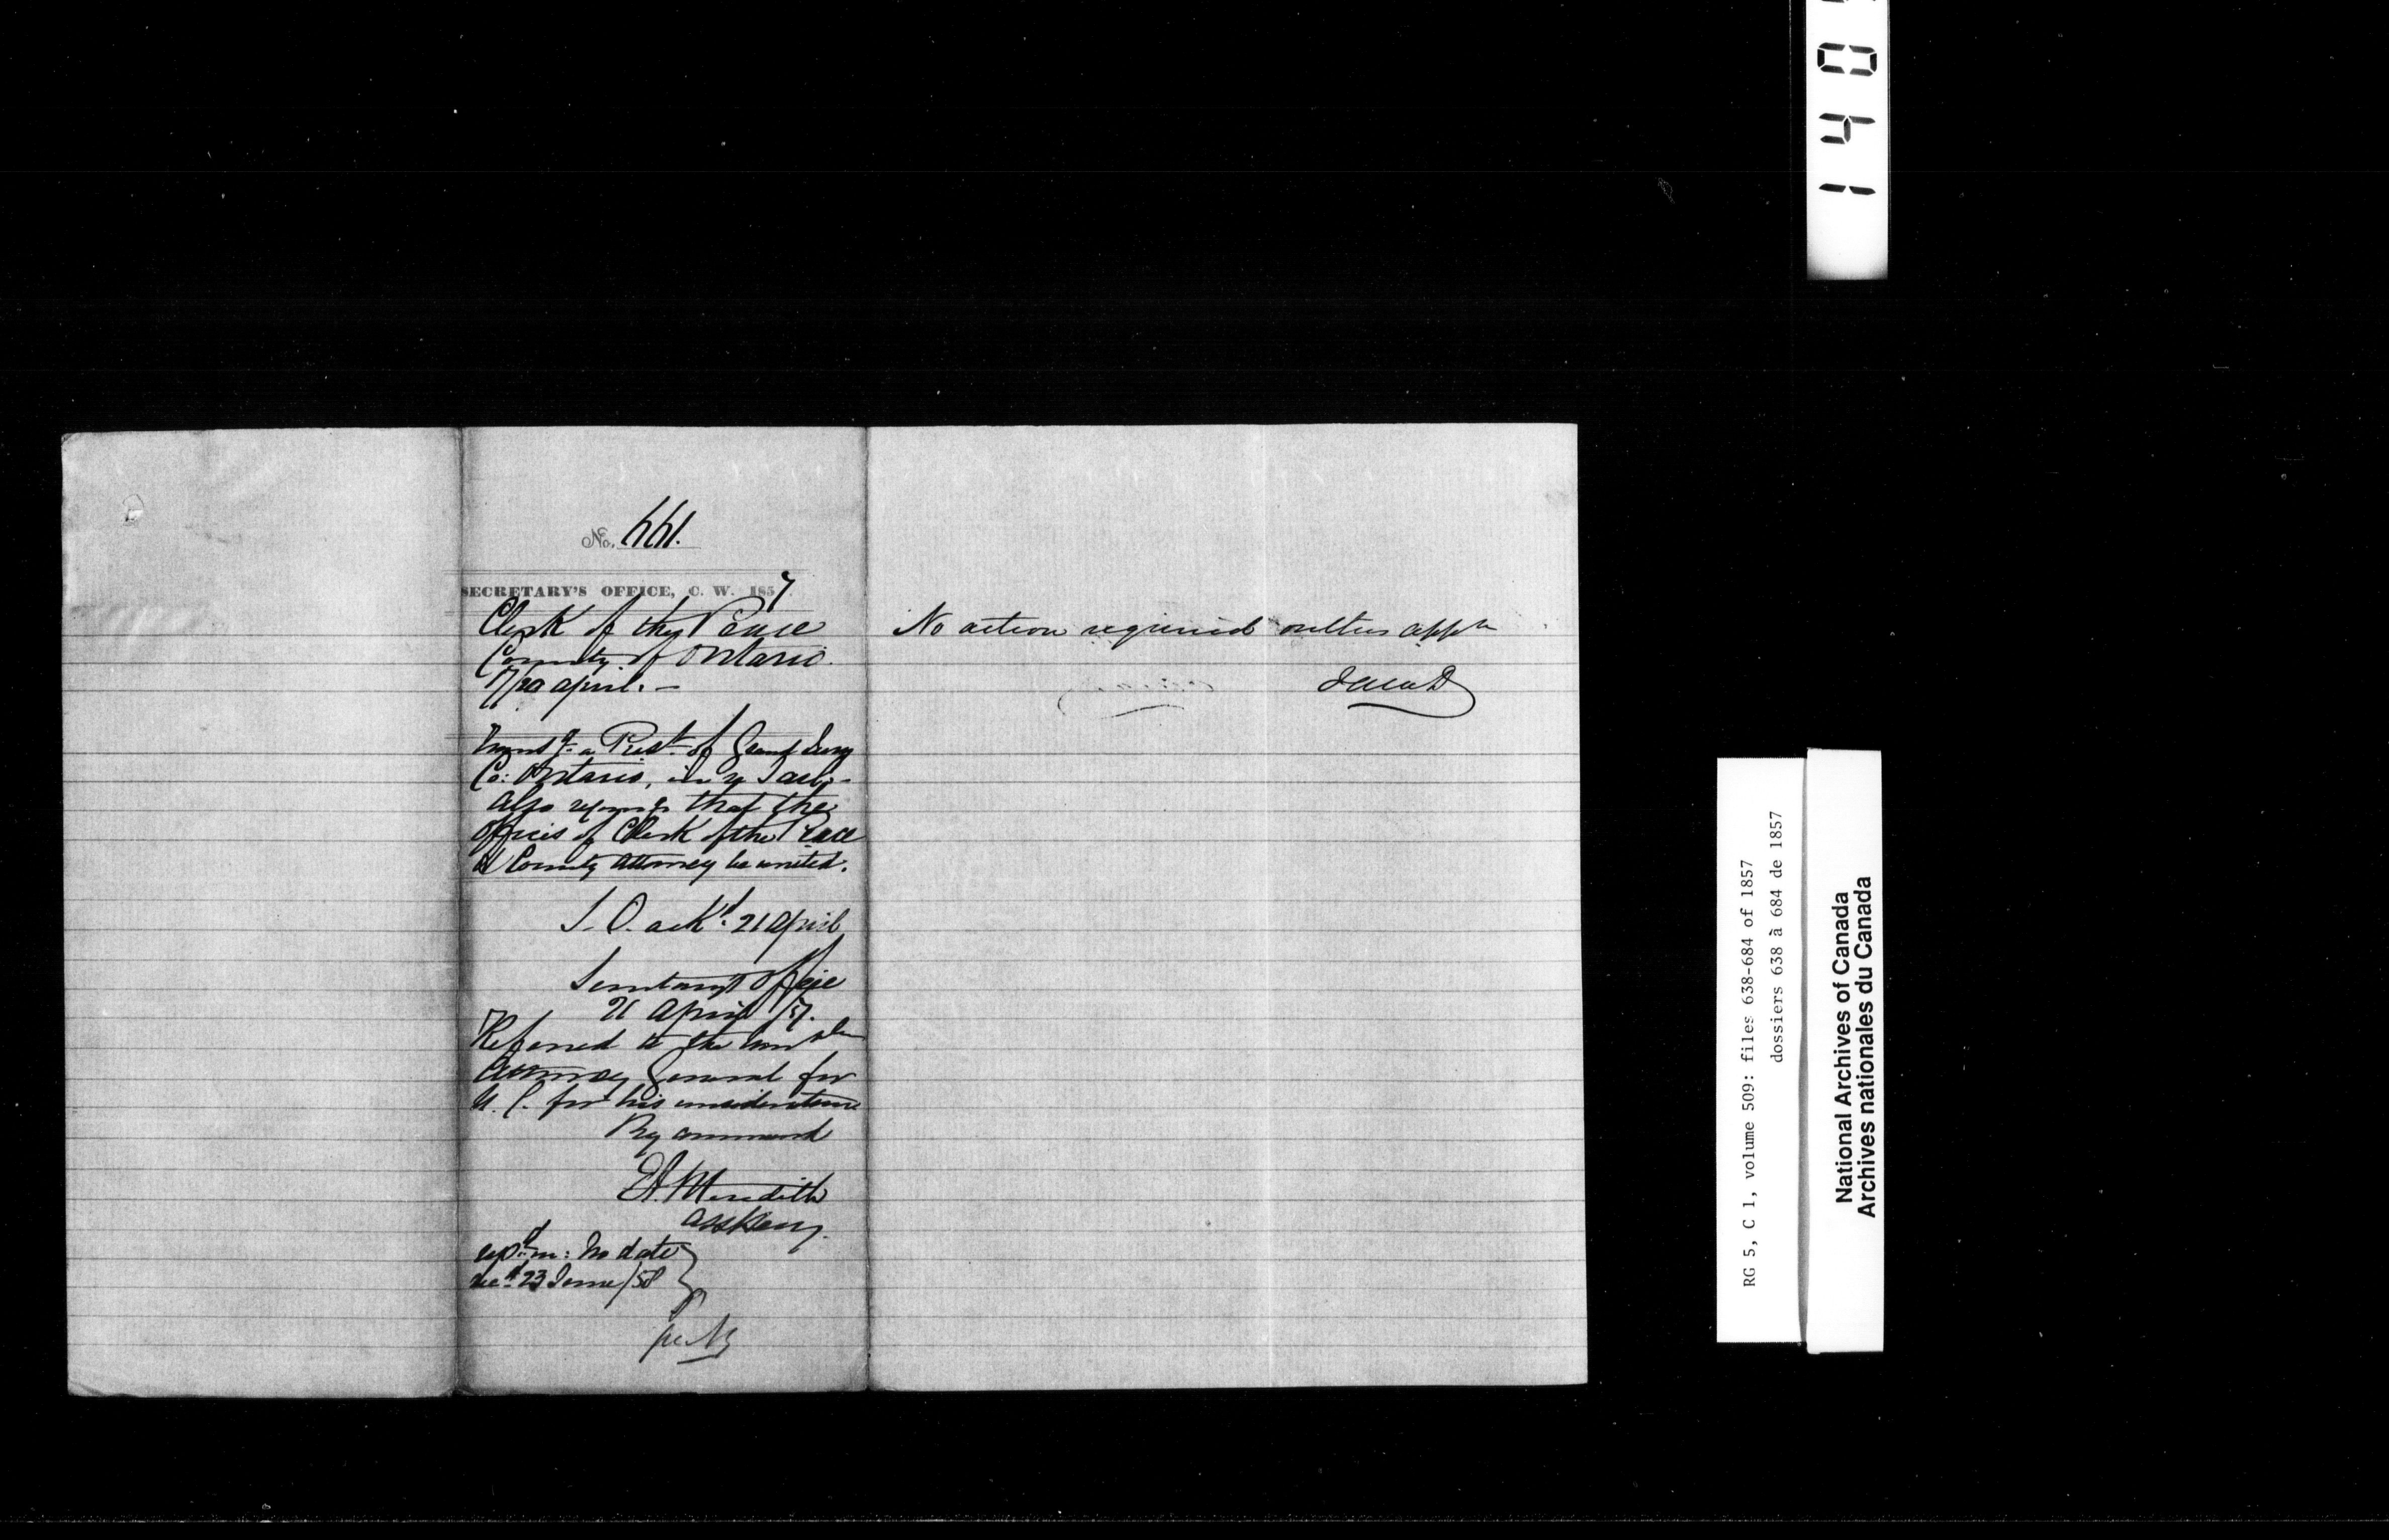 No. 661.
SECRETARY'S OFFICE, C. W. 1857.
Clerk of the Peace
County of Ontario.
17/20 April. –
Transg. a Prest. of Grand Jury
Co: Ontario, in re Gaol. –
Also that the
offices of Clerk of the Peace
& County Attorney be united.
ackd. 21 April
Secretary's Office
21 April /57.
Referred to the Honble
Attorney General for
U. C. for his consideration
By command
E A. Meredith
Asst Secy.
No date
recd. 23 June/58
No action required on this appn
J A M D
140
RG 5, C 1, volume 509: files 638-684 of 1857
dossiers 638 à 684 de 1857
National Archives of Canada
Archives nationales du Canada